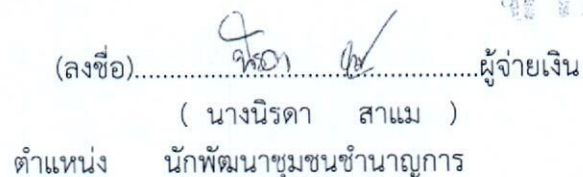 (ลงชื่อ)..............นิรดา..............ผู้จ่ายเงิน
( นางนิรดา สาแม )
ตำแหน่ง นักพัฒนาชุมชนชำนาญการ